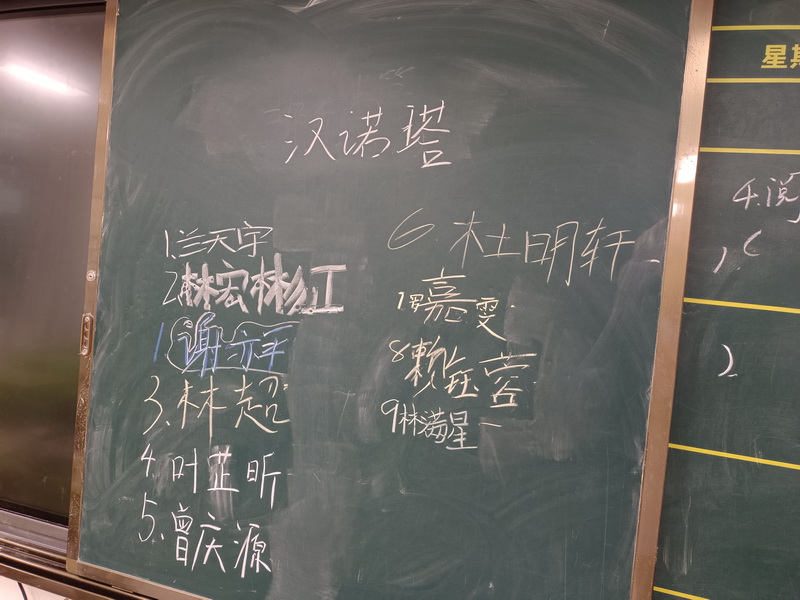 汉诺塔
1.兰天宇
2.林宏彬红
1.谢
3.林超
4.叶芷昕
5.曾庆源
6.杜明轩
7.罗嘉雯
8.赖钰蓉
9林满星
星期
4.阅
1.
2